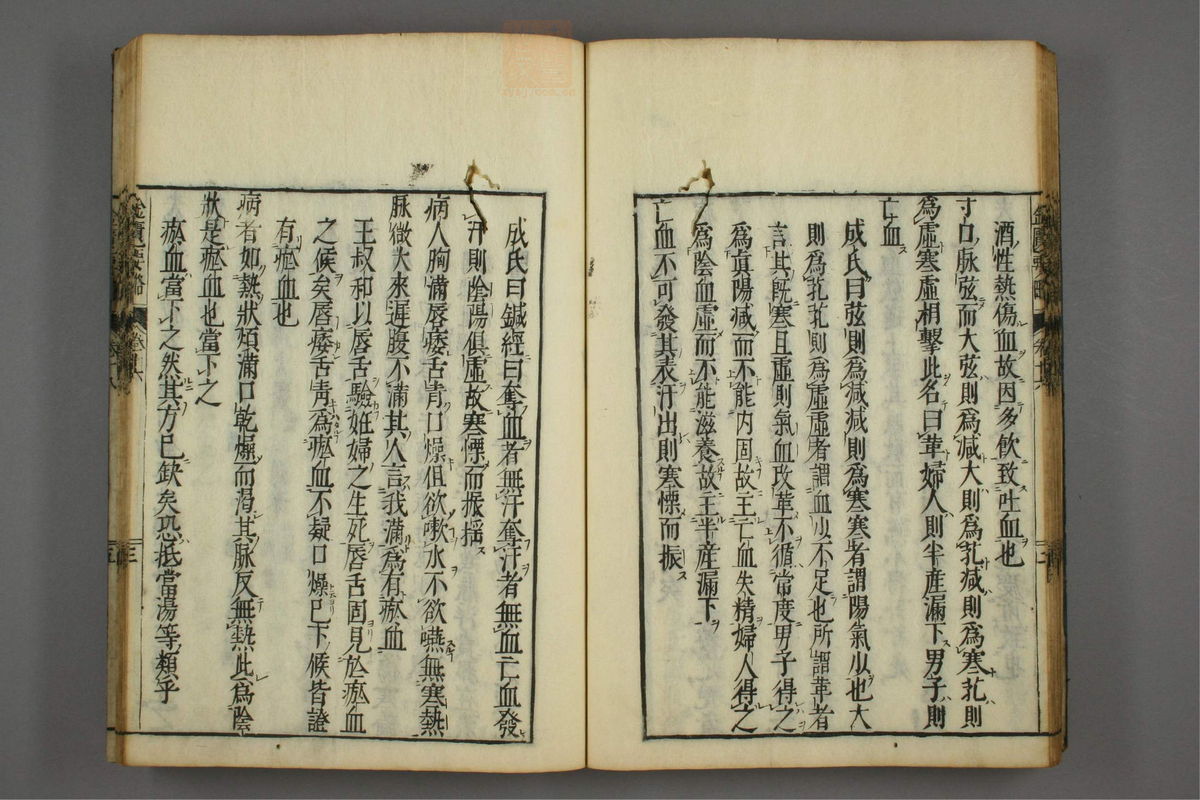 酒性熱傷血故因多飲致吐血也
寸口脉弦而大弦則為减大則為芤减則為寒芤則
為虛寒虛相擊此名曰革婦人則半産漏下男子則
亡血
成氏曰弦則為减减則為寒寒者謂陽氣少也大
則為芤芤則為虛虛者謂血少不足也所謂革者
言其既寒且虛則氣血改革不循常度男子得之
為真陽减而不能内固故主亡血失精婦人得之
為陰血虛而不能滋養故主半産漏下
亡血不可發其表汗出則寒慄而振
成氏曰鍼經曰奪血者無汗奪汗者無血亡血發
汗則陰陽俱虛故寒慄而振揺
病人胸滿唇痿舌青口燥但欲嗽水不欲嚥無寒熱
脉微大来遲腹不滿其人言我滿為有瘀血
王叔和以唇舌驗姙婦之生死唇舌固見於瘀血
之候矣唇痿舌青為瘀血不凝口燥已下候皆證
有瘀血也
病者如熱狀煩滿口乾燥而渴其脉反無熱此為陰
狀是瘀血也當下之
瘀血當下之然其方已缺矣恐抵當湯等類乎